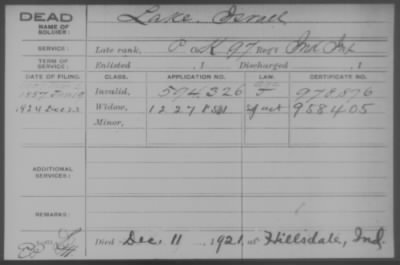 DEAD
NAME OF SOLDIER:
Lake, Israel
SERVICE:
Late rank, P Co. K 97 Reg't Ind Inf
TERM OF SERVICE:
Enlisted , 1 Discharged , 1
DATE OF FILING. CLASS. APPLICATION NO. LAW. CERTIFICATE NO.
Invalid, 594,326 978,876
1924 Widow, 958405
Minor,
ADDITIONAL SERVICES:
REMARKS:
Died Dec. 11, 1921, at Hillsdale, Ind.